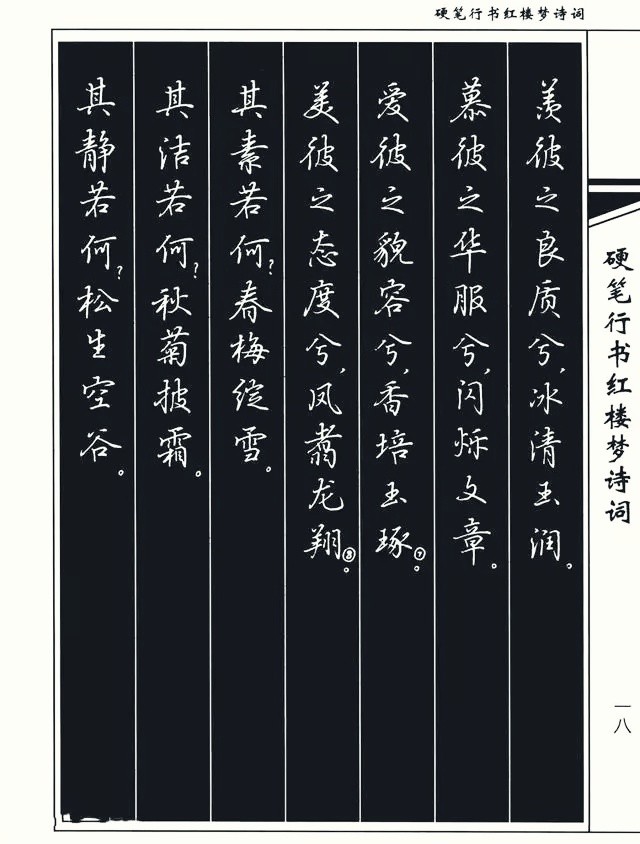 硬笔行书红楼梦诗词
羡彼之良质兮，冰清玉润。
慕彼之华服兮，闪烁文章。
爱彼之貌容兮，香培玉琢⑦。
美彼之态度兮，凤翥龙翔⑧。
其素若何？春梅绽雪。
其洁若何？秋菊披霜。
其静若何？松生空谷。
硬笔行书红楼梦诗词
一八